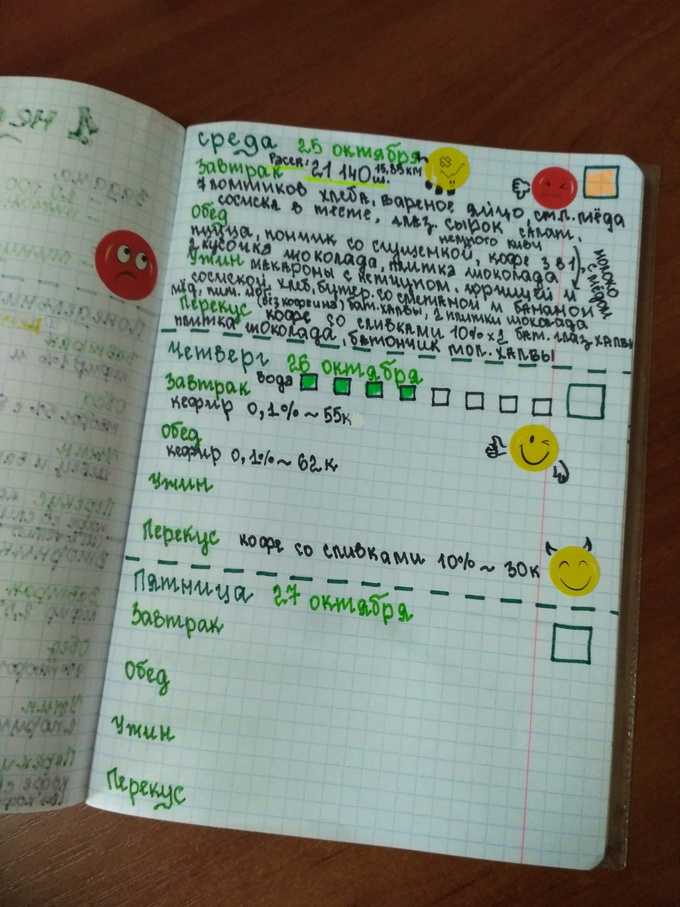 среда 25 октября
Завтрак Рассп: 21 140 ш. 15,85 км
7 ломтиков хлеба, вареное яйцо, ст.л. мёда
сосиска в тесте, глаз. сырок
Обед немного киви
пицца, пончик со сгущенкой, кофе 3 в 1,
2 кусочка шоколада, плитка шоколада
молоко с мёдом
Ужин макароны с кетчупом, горчицей и
сосиской, хлеб, бутер. со сметаном и бананом
мёд, (без кофеина), бат. халвы, 2 плитки шоколада
Перекус кофе со сливками 10% x 2 бат. глаз. халвы
плитка шоколада, батончик мол. халвы
Четверг 26 октября
Завтрак вода
кефир 0,1% ~ 55к
Обед
кефир 0,1% ~ 62к
Ужин
Перекус кофе со сливками 10% ~ 30к
Пятница 27 октября
Завтрак
Обед
Ужин
Перекус